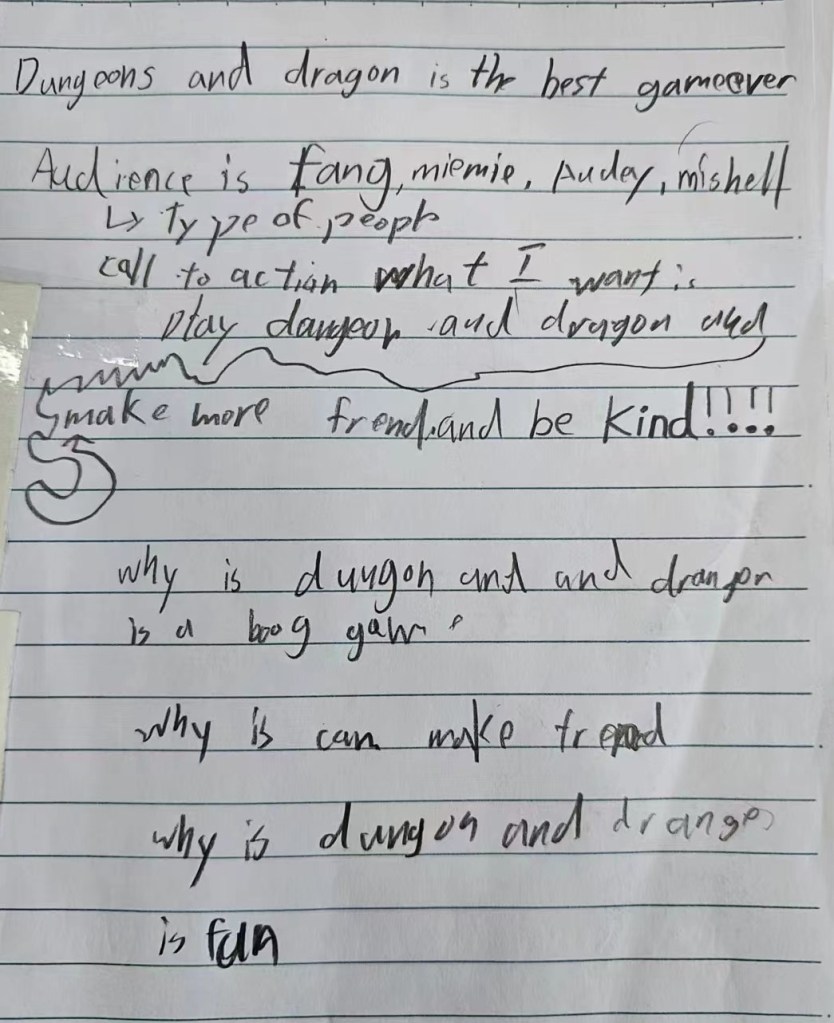 Dungeons and dragon is the best gameever
Audience is fang, miemie, Audey, mishell
↳ Type of people
call to action what I want is
play dangeon and dragon and
make more frend.and be kind!!!!
why is dungon and and drangon
is a boog game
why is can make frend
why is dungon and drange
is fun